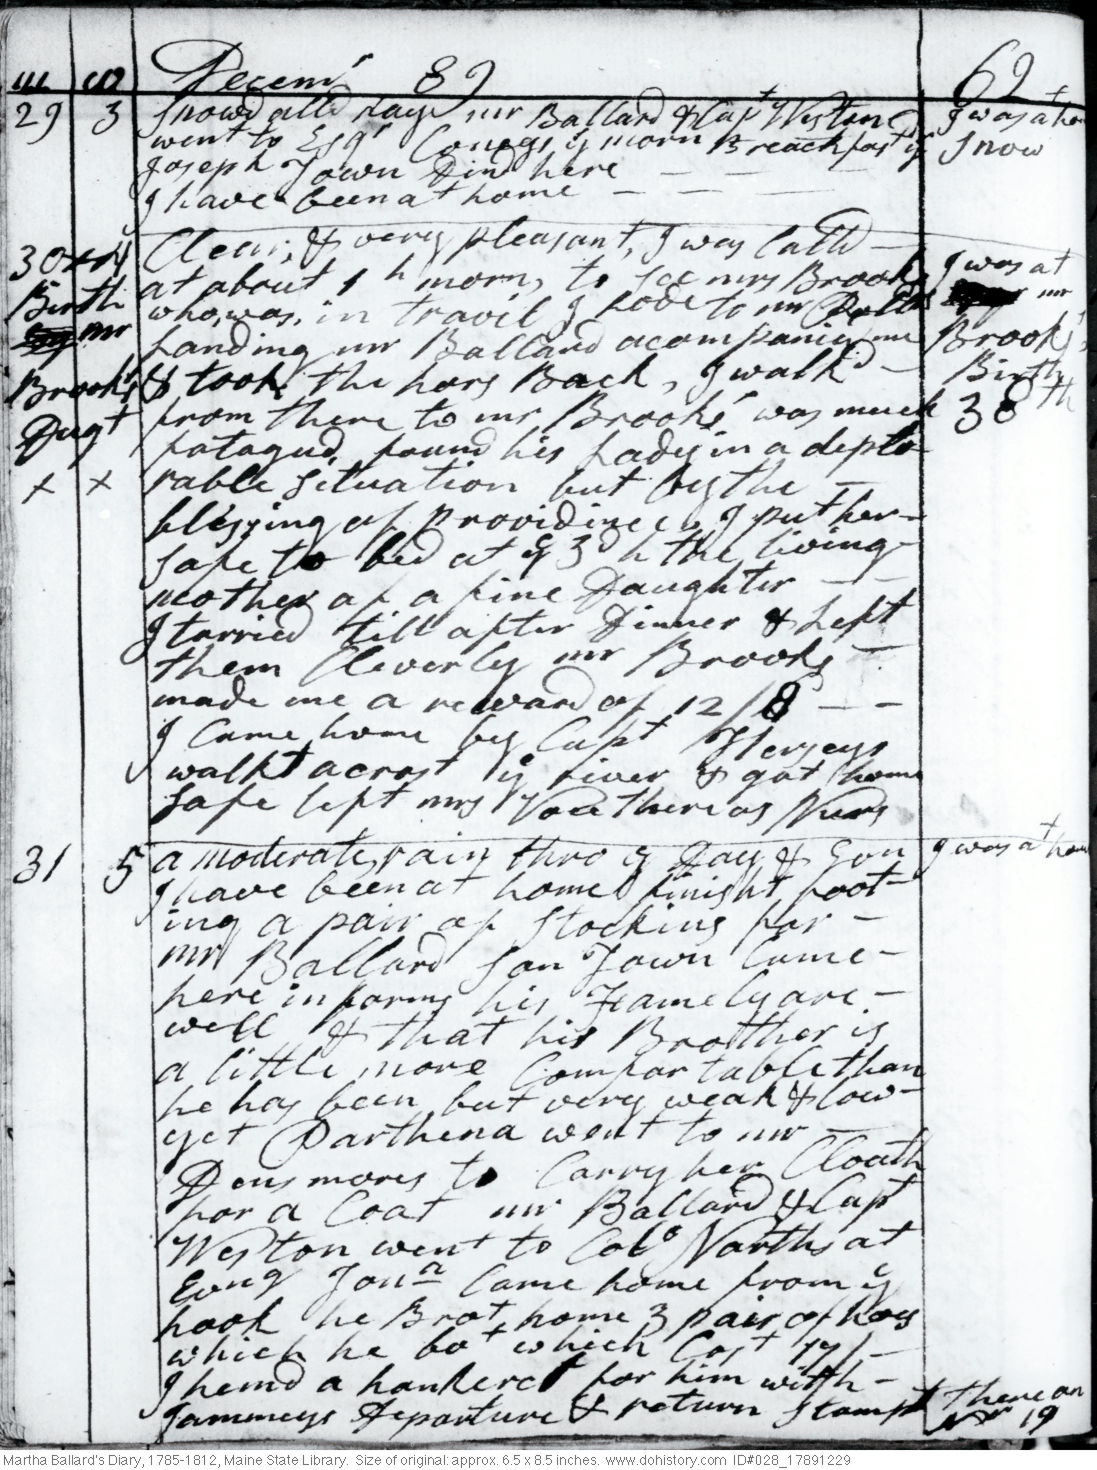 m S Decemr 89 69
29 3 Snowd all day mr Ballard & Capt Weston I was at hom
went to Esqr Conys ys morn Breackfast ys Snow
Joseph Town Dind here
I have been at home
30 4 Clear, & very pleasant, I was Calld I was at
at about 1 h morn, to see mrs Brooks mr
Birth who was in travil I rode to mr Brooks'
mr Landing mr Ballard acompanied me Birth
Brooks & took the hors Back, I walkd 38th
Dagt from there to mr Brooks' was much
X X fatagud, found his Lady in a deplo
rable situation but by the
blessing of Providince I put her
safe to bed at y 3 h the living
mother of a fine Daughter
I tarried till after Dinner & Left
them Cleverly mr Brooks
made me a reward of 12/8
I Came home by Capt Herseys
walkt acrost ye river & got home
safe left mrs Voce there as Nurs
31 5 a moderate rain thro ye Day & Evn I was at home
I have been at home finisht foot
ing a pair of Stockins for
mr Ballard Son Town Came
here informs his Family are
well & that his Brother is
a little more Comfortable than
he has been but very weak & low
yet Parthena went to mr
Densmores to Carry her Cloath
for a Coat mr Ballard & Capt
Weston went to Colo Norths at
Evng Jonn Came home from ye
hook he Brot home 3 pair of hors
which he bot which Cost 17/
I hemd a hankerct for him with
Jammeys Departure & return Stampt there on
19
Martha Ballard's Diary, 1785-1812, Maine State Library. Size of original: approx. 6.5 x 8.5 inches. www.dohistory.com ID#028_17891229